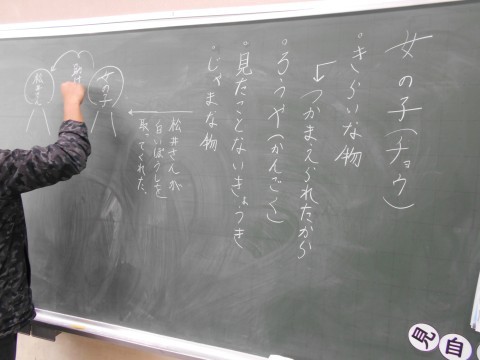 女の子(チョウ)
・きらいな物
↓
つかまえられたから
・ろうや(かんごく)
・見たことないきょうき
・じゃまな物
松井さんが
白いぼうしを
取ってくれた。
女の子
松井さん
見
自